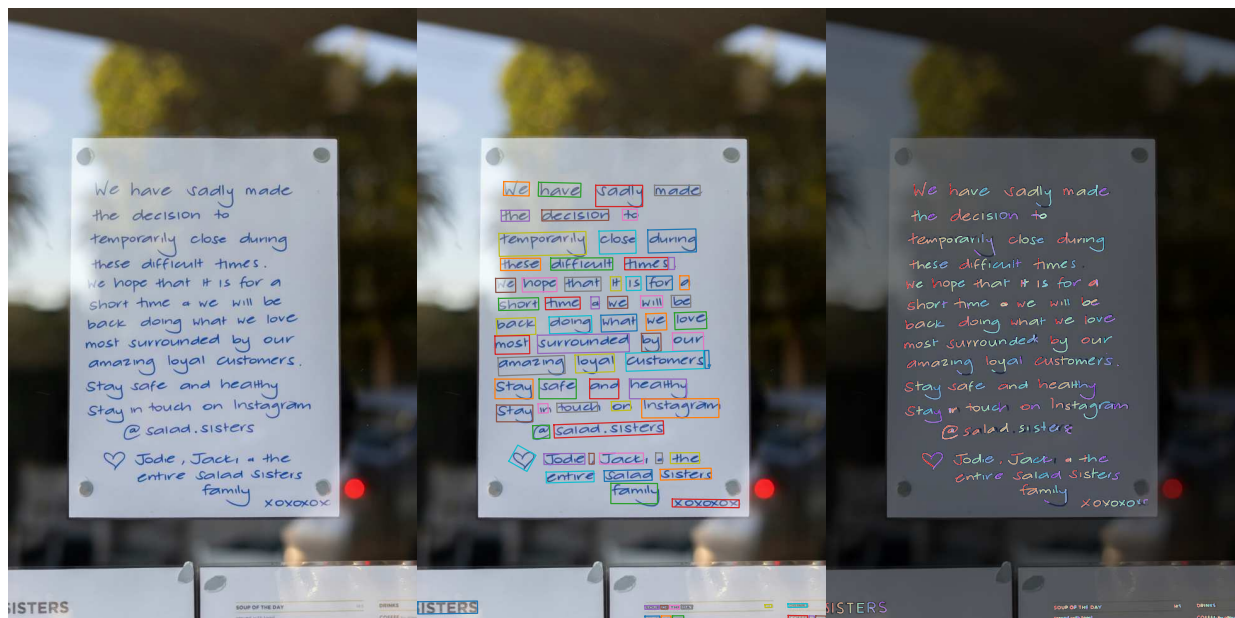 We have sadly made
the decision to
temporarily close during
these difficult times.
We hope that it is for a
short time & we will be
back doing what we love
most surrounded by our
amazing loyal customers.
Stay safe and healthy
Stay in touch on Instagram
@salad.sisters
♡ Jodie, Jacki & the
entire Salad Sisters
family
xoxoxox
SISTERS
SOUP OF THE DAY
DRINKS
We have sadly made
the decision to
temporarily close during
these difficult times.
We hope that it is for a
short time & we will be
back doing what we love
most surrounded by our
amazing loyal customers.
Stay safe and healthy
Stay in touch on Instagram
@salad.sisters
♡ Jodie, Jacki & the
entire Salad Sisters
family
xoxoxox
SISTERS
We have sadly made
the decision to
temporarily close during
these difficult times.
We hope that it is for a
short time & we will be
back doing what we love
most surrounded by our
amazing loyal customers.
Stay safe and healthy
Stay in touch on Instagram
@salad.sisters
♡ Jodie, Jacki & the
entire Salad Sisters
family
xoxoxox
SISTERS
SOUP OF THE DAY
DRINKS